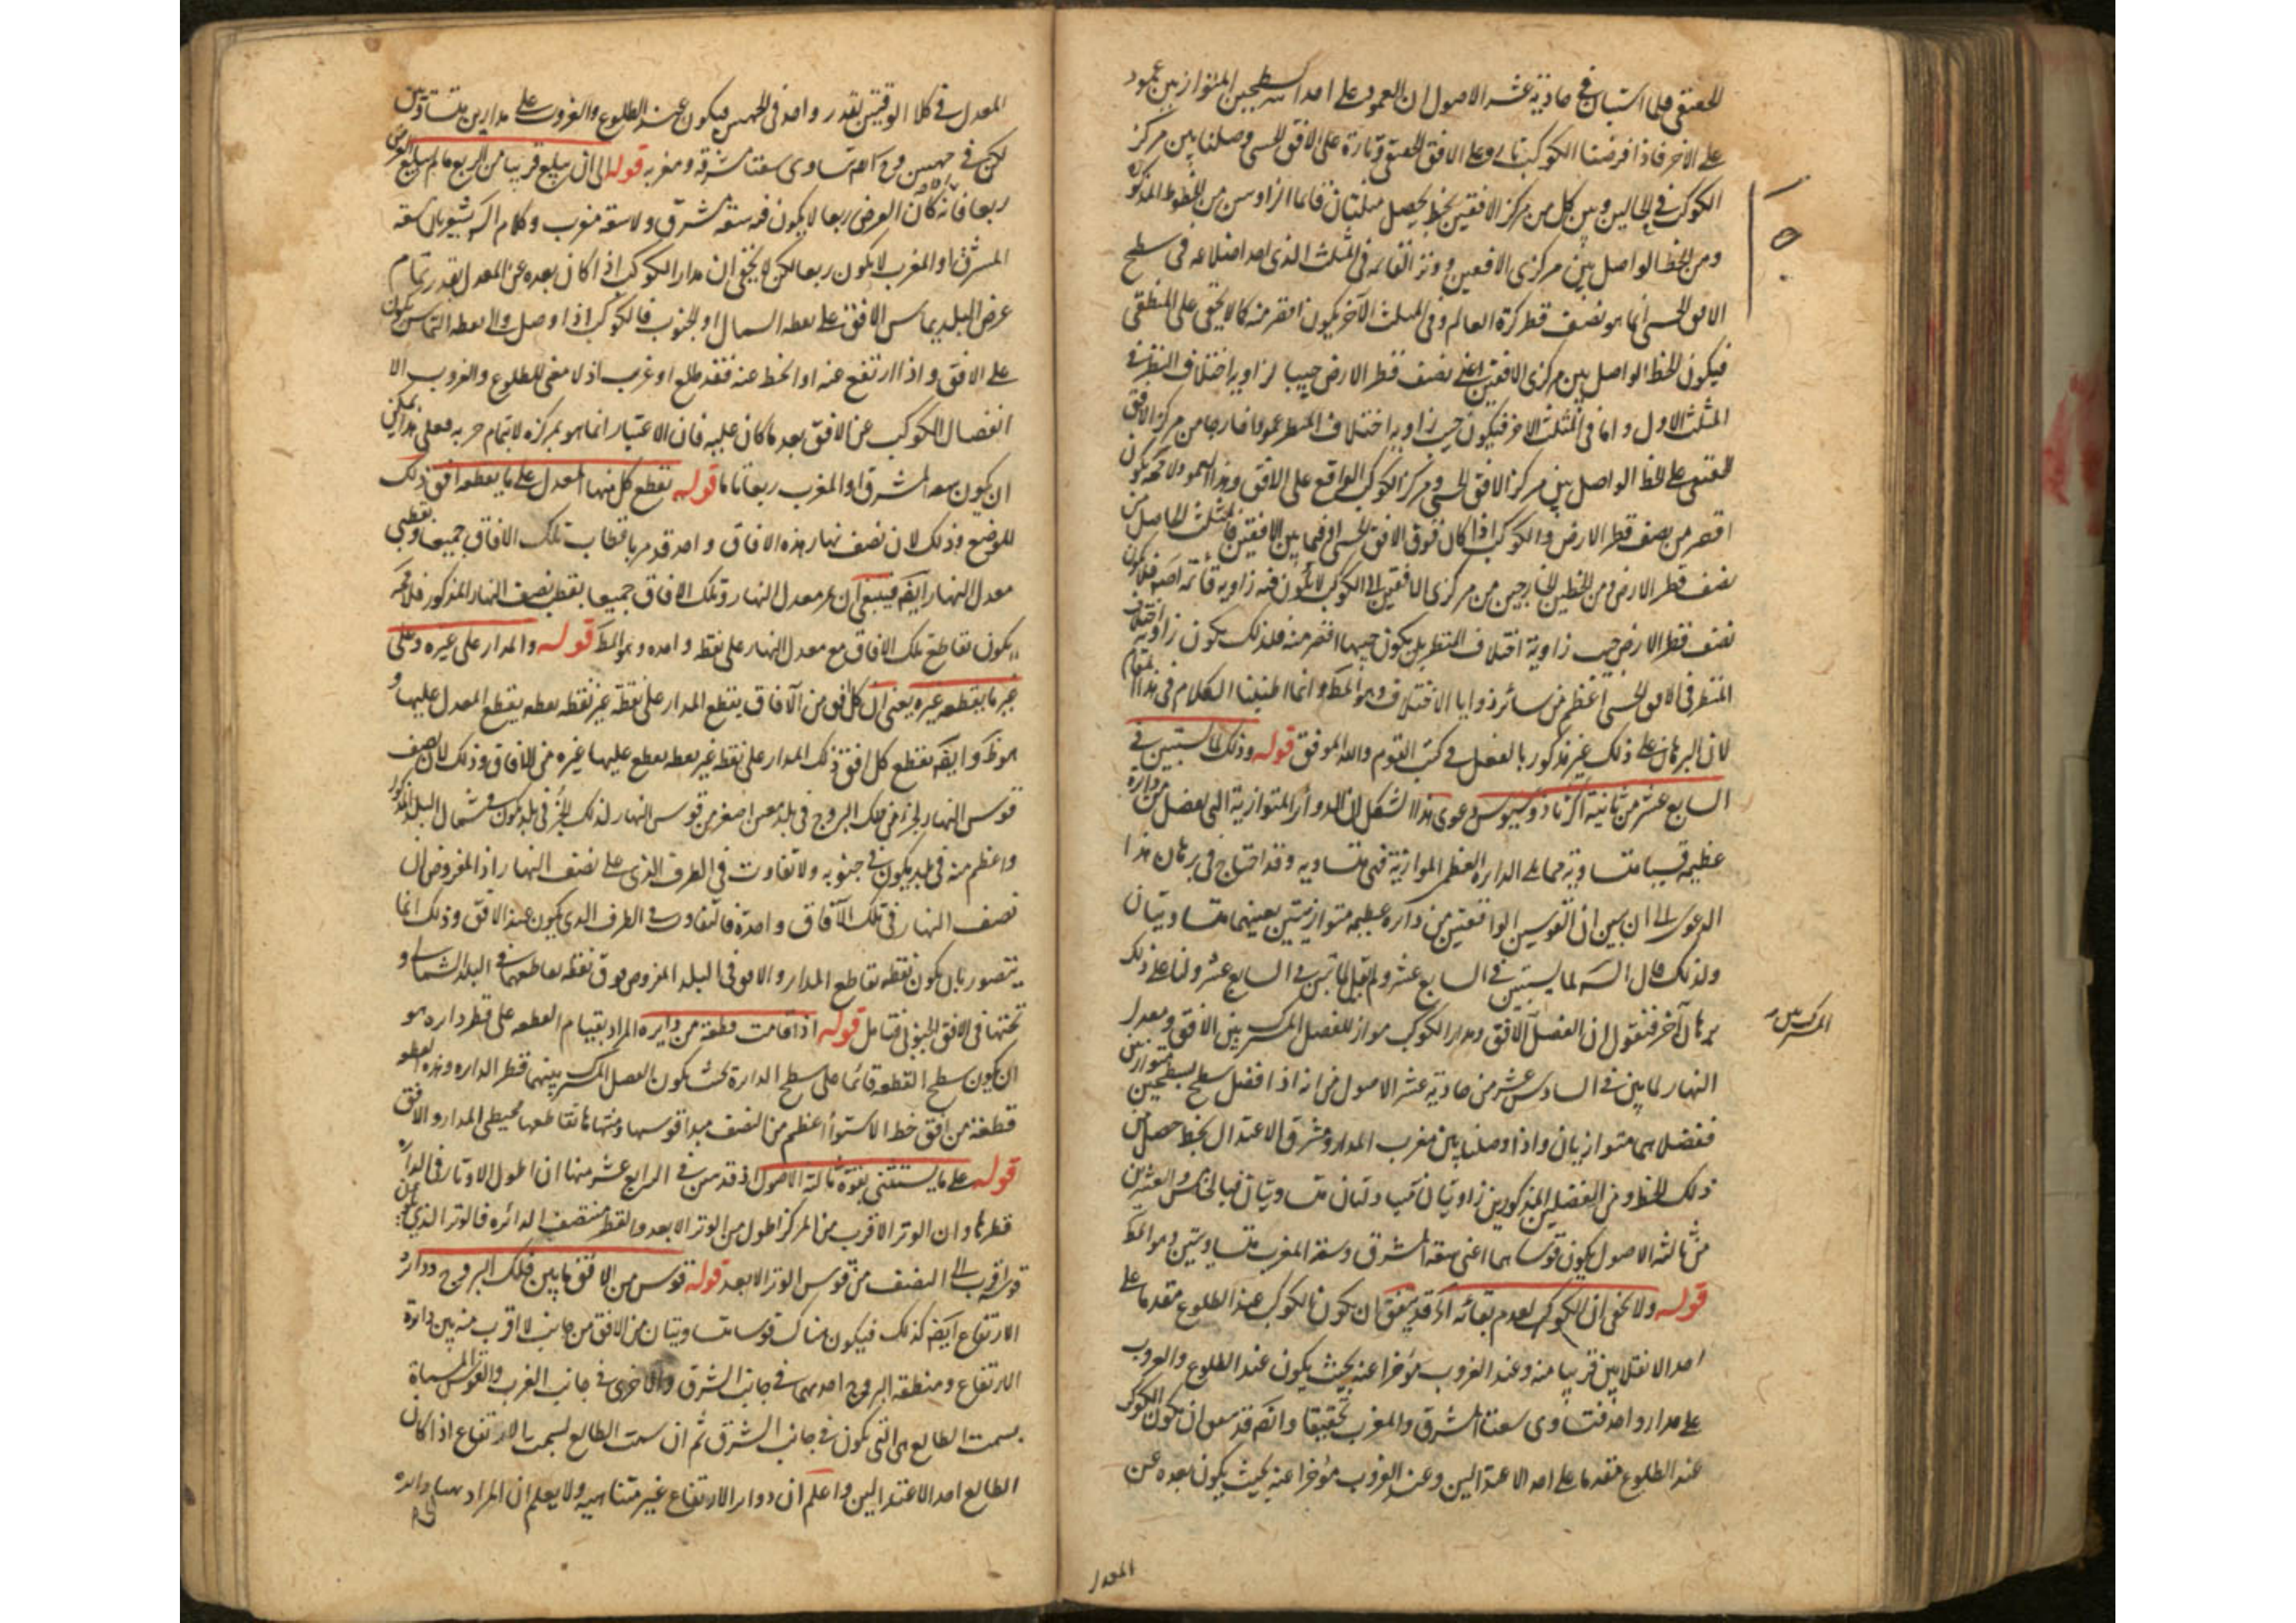 الحقيقي فلما استبان في حادية عشر الاصول ان العمود على احد السطحين المتوازيين عمود
على الآخر فاذا فرضنا الكوكب تارة على الافق الحقيقي وتارة على الافق الحسي ووصلنا بين مركز
الكوكب في الحالين وبين كل من مركز الافقين بخط يحصل مثلثان قائما الزاوستين من الخطوط المذكورة
ومن الخط الواصل بين مركزي الافقين ووتر القائمة في المثلث الذي احد اضلاعه في سطح
الافق الحسي انما هو نصف قطر كرة العالم وفي المثلث الآخر يكون اقصر منه كما لا يخفى على المنطقي
فيكون الخط الواصل بين مركزي الافقين اعني نصف قطر الارض جيبا لزاوية اختلاف المنظر في
المثلث الاول واما في المثلث الاخر فيكون جيب زاوية اختلاف المنظر عمودا خارجا من مركز الافق
الحقيقي على الخط الواصل بين مركز الافق الحسي ومركز الكوكب الواقع على الافق وهذا العمود لا محة يكون
اقصر من نصف قطر الارض والكوكب اذا كان فوق الافق الحسي او فيما بين الافقين فالمثلث الحاصل من
نصف قطر الارض ومن الخطين الخارجين من مركزي الافقين الى الكوكب لا يكون فيه زاوية قائمة اصلا فلا يكون
نصف قطر الارض جيب زاوية اختلاف المنظر بل يكون جيبها اقصر منه فلذلك يكون زاوية اختلاف
المنظر في الافق الحسي اعظم من سائر زوايا الاختلاف وهو المط وانما اطنبنا الكلام في هذا المقام
لان البرهان على ذلك غير مذكور بالفعل في كتب القوم والله الموفق قوله وذلك لما يستبين في
السابع عشر من ثانية اكر ثاذوسيوس دعوى هذا الشكل ان الدوائر المتوازية التي يفصل من دايرة
عظيمة قسيا متساوية مما يلي الدايرة العظمى الموازية فهي متساوية وقد احتاج في برهان هذا
الدعوى الى ان يبين ان القوسين الواقعتين من دايرة عظيمة متوازيتين بعينهما متساويتان
ولذلك قال الش لما يستبين في السابع عشر ولم يقل لما تبين في السابع عشر ولنا على ذلك
برهان آخر فنقول ان الفصل الافق ومدار الكوكب مواز للفصل المشترك بين الافق ومعدل
النهار لما بين في السادس عشر من حادية عشر الاصول من انه اذا فصل سطح سطحين متوازيين
ففصلاهما متوازيان واذا وصلنا بين مغرب المدار ومشرق الاعتدال بخط حصل من
ذلك الخط ومن الفصلين المذكورين زاويتان متبادلتان متساويتان فبالخامس والعشرين
من ثالثة الاصول يكون قوساهما اعني سعة المشرق وسعة المغرب متساويتين وهو المط
قوله ولا يخفى ان الكوكب لعدم بقائه اذ قد يتفق ان يكون الكوكب عند الطلوع مقدما على
احد الانقلابين قريبا منه وعند الغروب مؤخرا عنه بحيث يكون عند الطلوع والغروب
على مدار واحد فتساوى سعتا المشرق والمغرب تحقيقا وايضا قد يتفق ان يكون الكوكب
عند الطلوع مقدما على احد الاعتدالين وعند الغروب مؤخرا عنه بحيث يكون بعده عن
المعدل
المعدل في كلا الوقتين بقدر واحد في الجهتين فيكون عند الطلوع والغروب على مدارين متساويين
لكن في جهتين وح ايضا تساوى سعتا مشرقه ومغربه قوله الى ان يبلغ قريبا من الربع ما لم يبلغ العرض
ربعا فانه اذا كان العرض ربعا لا يكون فيه سعة مشرق ولا سعة مغرب وكلام الش يشعر بان سعة
المشرق او المغرب لا يكون ربعا لكن لا يخفى ان مدار الكوكب اذا كان بعده عن المعدل بقدر تمام
عرض البلد يماس الافق على نقطة الشمال او الجنوب فالكوكب اذا وصل الى نقطة التماس يكون
على الافق واذا ارتفع عنه او انحط عنه فقد طلع او غرب اذ لا معنى للطلوع والغروب الا
انفصال الكوكب عن الافق بعد ما كان عليه فان الاعتبار انما هو بمركزه لا بتمام جرمه فعلى هذا يمكن
ان يكون سعة المشرق او المغرب ربعا تاما قوله تقطع كل منها المعدل على ما يقطعه افق ذلك
الموضع وذلك لان نصف نهار هذه الافاق واحد قد مر باقطاب تلك الافاق جميعا وبقطبي
معدل النهار ايضا فينبغي ان يمر معدل النهار وتلك الافاق جميعا بقطبي نصف النهار المذكور فلا محة
يكون تقاطع تلك الافاق مع معدل النهار على نقطة واحدة وهو المط قوله والمدار على غيره وعلى
غير ما يقطعه غيره يعني ان كل افق من الآفاق يقطع المدار على نقطة غير نقطة يقطع المعدل عليها و
هو ظ وايضا يقطع كل افق ذلك المدار على نقطة غير نقطة يقطع عليها غيره من الافاق وذلك لان نصف
قوس النهار لجزء من فلك البروج في بلد معين اصغر من قوس النهار لذلك الجزء في بلد يكون في شمال البلد المذكور
واعظم منه في بلد يكون في جنوبه ولا تفاوت في الطرف الذي على نصف النهار اذ المفروض ان
نصف النهار في تلك الآفاق واحدة فالتفاوت في الطرف الذي يكون عند الافق وذلك انما
يتصور بان يكون نقطة تقاطع المدار والافق في البلد المفروض فوق نقطة تقاطعهما في البلد الشمالي و
تحتها في الافق الجنوبي فتامل قوله اذا قامت قطعة من دايرة المراد بقيام القطعة على قطر دايرة هو
ان يكون سطح القطعة قائما على سطح الدايرة بحيث يكون الفصل المشترك بينهما قطر الدايرة وهذه القطعة
قطعة من افق خط الاستواء اعظم من النصف مبدا قوسها ومنتهاها تقاطعها محيطي المدار والافق
قوله على ما يستثنى بقوة ثالثة الاصول اذ قد تبين في الرابع عشر منها ان اطول الاوتار في الدايرة
قطرها وان الوتر الاقرب من المركز اطول من الوتر الابعد والقطر منتصف الدائرة فالوتر الذي يكون
قوسه اقرب الى النصف من قوس الوتر الابعد قوله قوس من الافق ما بين فلك البروج ودائرة
الارتفاع ايضا كذلك فيكون هناك قوسان متساويتان من الافق من جانب الاقرب منه بين دايرة
الارتفاع ومنطقة البروج احدهما في جانب الشرق والاخرى في جانب الغرب والقوس المسماة
بسمت الطالع هي التي يكون في جانب الشرق ثم ان سمت الطالع ليس سمت الارتفاع اذا كان
الطالع احد الاعتدالين واعلم ان دوائر الارتفاع غير متناهية ولا يعلم ان المراد دايرة